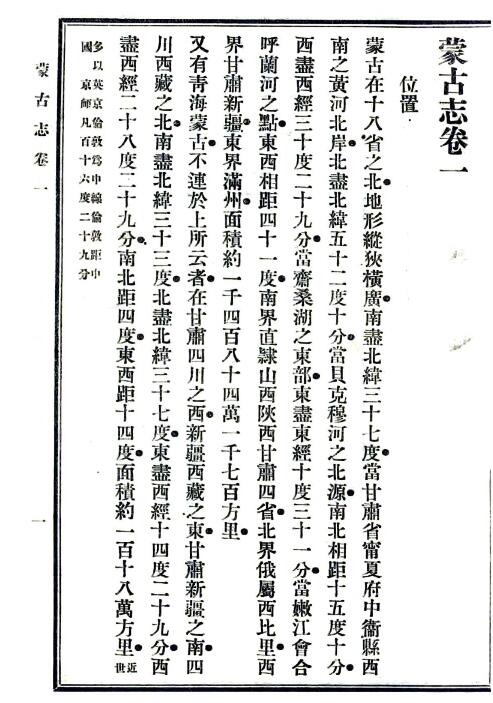 蒙古志卷一
位置
蒙古在十八省之北●地形縱狹橫廣●南盡北緯三十七度●當甘肅省甯夏府中衞縣西
南之黃河北岸●北盡北緯五十二度十分●當貝克穆河之北源●南北相距十五度十分●
西盡西經三十度二十九分●當齋桑湖之東部●東盡東經十度三十一分●當嫩江會合
呼蘭河之點●東西相距四十一度●南界直隷山西陝西甘肅四省●北界俄屬西比里●西
界甘肅新疆●東界滿州●面積約一千四百八十四萬一千七百方里●
又有靑海蒙古●不連於上所云者●在甘肅四川之西●新疆西藏之東●甘肅新疆之南●四
川西藏之北●南盡北緯三十三度●北盡北緯三十七度●東盡西經十四度二十九分●西
盡西經二十八度二十九分●南北距四度●東西距十四度●面積約一百十八萬方里●近世
多以英京倫敦爲中線倫敦距中
國京師凡百十六度二十九分
蒙古志卷一
一